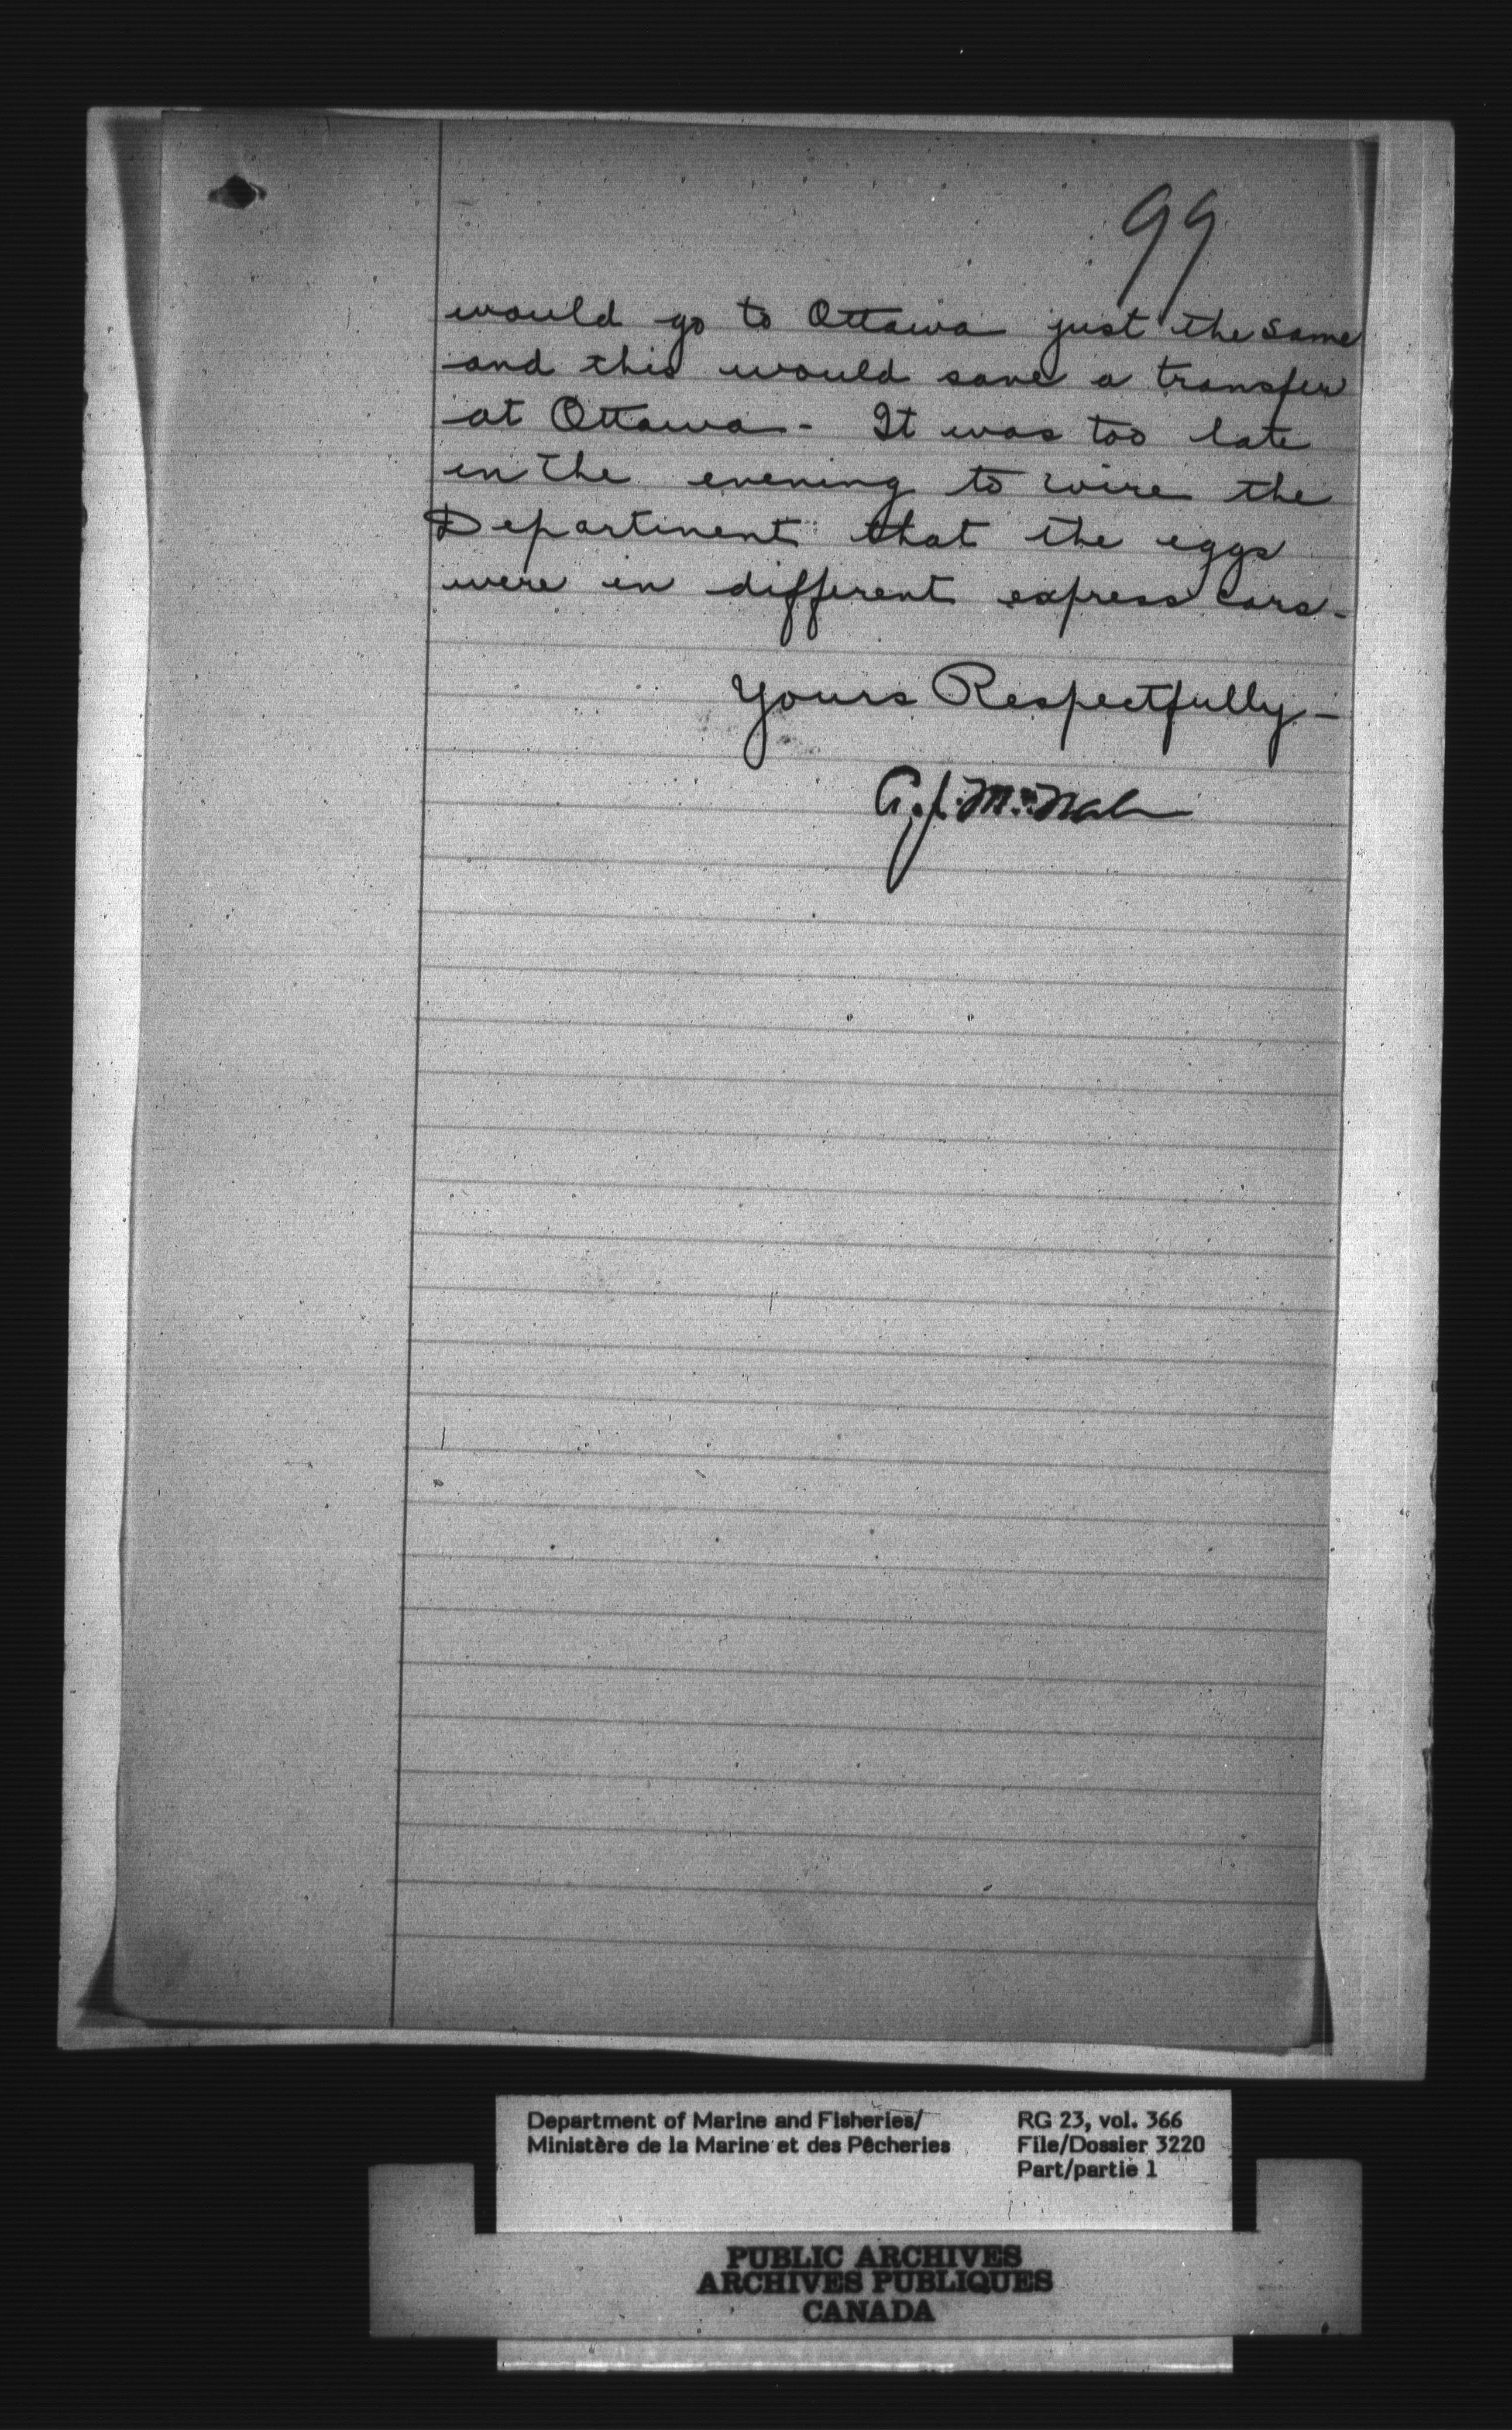 99
would go to Ottawa just the same
and this would save a transfer
at Ottawa - It was too late
in the evening to wire the
Department that the eggs
were in different express cars -
Yours Respectfully -
Department of Marine and Fisheries/
Ministère de la Marine et des Pêcheries
RG 23, vol. 366
File/Dossier 3220
Part/partie 1
PUBLIC ARCHIVES
ARCHIVES PUBLIQUES
CANADA